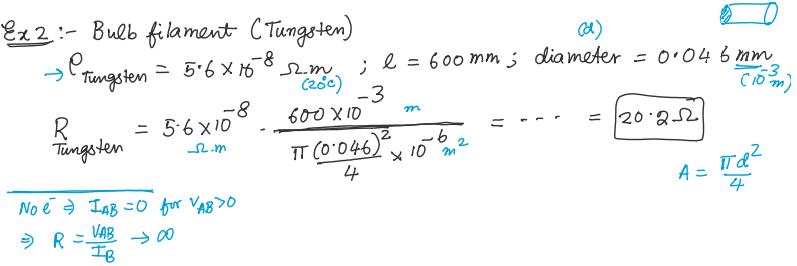 Ex 2 :- Bulb filament (Tungsten)
(d)
→ ρ Tungsten = 5.6 × 10^-8 Ω.m ; l = 600 mm ; diameter = 0.046 mm
(20°C) (10^-3 m)
R Tungsten = 5.6 × 10^-8 Ω.m · 600 × 10^-3 m / (π (0.046)^2 / 4 × 10^-6 m^2) = - - - - = 20.2 Ω
A = πd^2 / 4
No e^- ⇒ I_AB = 0 for V_AB > 0
⇒ R = V_AB / I_B → ∞